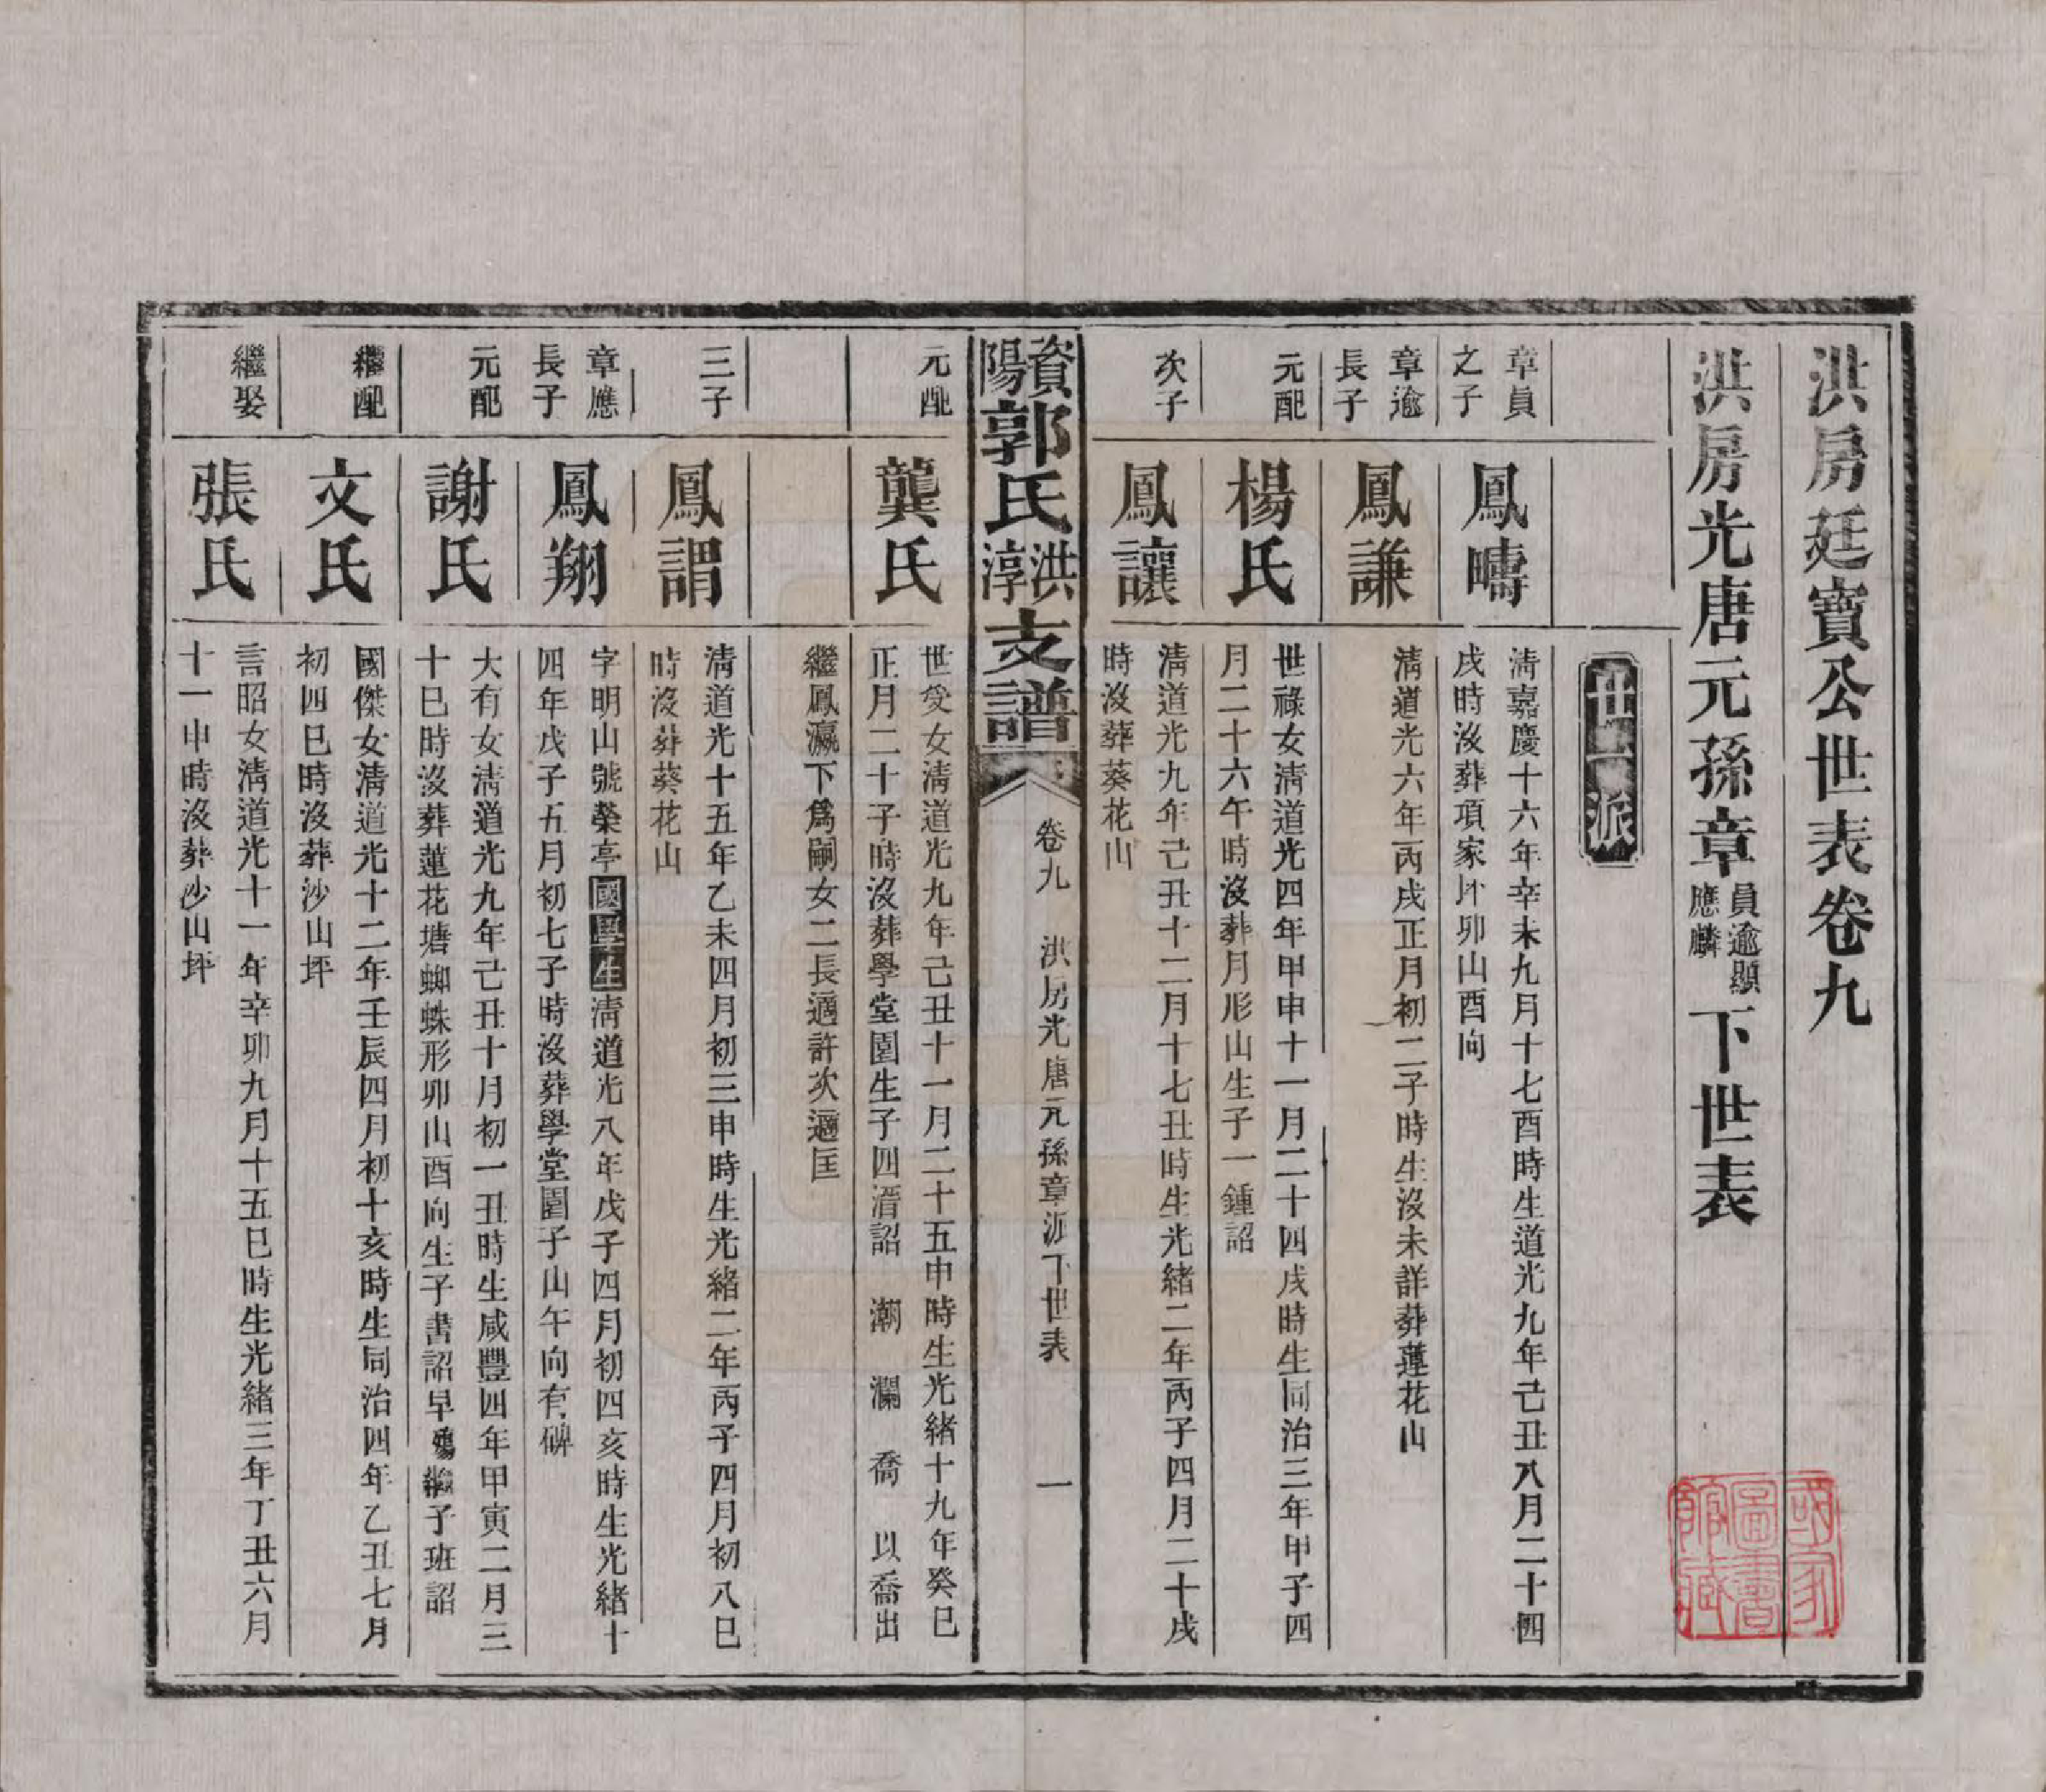 洪房廷寶公世表卷九
洪房光唐元孫章員逾顯應麟下世表
世派
章員之子
鳳疇
清嘉慶十六年辛未九月十七酉時生道光九年己丑八月二十四
戌時沒葬項家坏卯山酉向
章逾長子
鳳謙
清道光六年丙戌正月初二子時生沒未詳葬蓮花山
元配
楊氏
世祿女清道光四年甲申十一月二十四戌時生同治三年甲子四
月二十六午時沒葬月形山生子一鍾詔
次子
鳳讓
清道光九年己丑十二月十七丑時生光緒二年丙子四月二十戌
時沒葬葵花山
資陽郭氏洪淳支譜
卷九 洪房光唐元孫章派下世表 一
元配
龔氏
世受女清道光九年己丑十一月二十五申時生光緒十九年癸巳
正月二十子時沒葬學堂園生子四濳詔 潮 瀾 喬 以喬出
繼鳳瀛下爲嗣女二長適許次適匡
三子
鳳謂
清道光十五年乙未四月初三申時生光緒二年丙子四月初八巳
時沒葬葵花山
章應長子
鳳翔
字明山號榮亭國學生清道光八年戊子四月初四亥時生光緒十
四年戊子五月初七子時沒葬學堂園子山午向有碑
元配
謝氏
大有女清道光九年己丑十月初一丑時生咸豐四年甲寅二月三
十巳時沒葬蓮花塘蜘蛛形卯山酉向生子書詔早殤繼子班詔
繼配
文氏
國傑女清道光十二年壬辰四月初十亥時生同治四年乙丑七月
初四巳時沒葬沙山坪
繼娶
張氏
言昭女清道光十一年辛卯九月十五巳時生光緒三年丁丑六月
十一申時沒葬沙山坪
國家圖書館藏